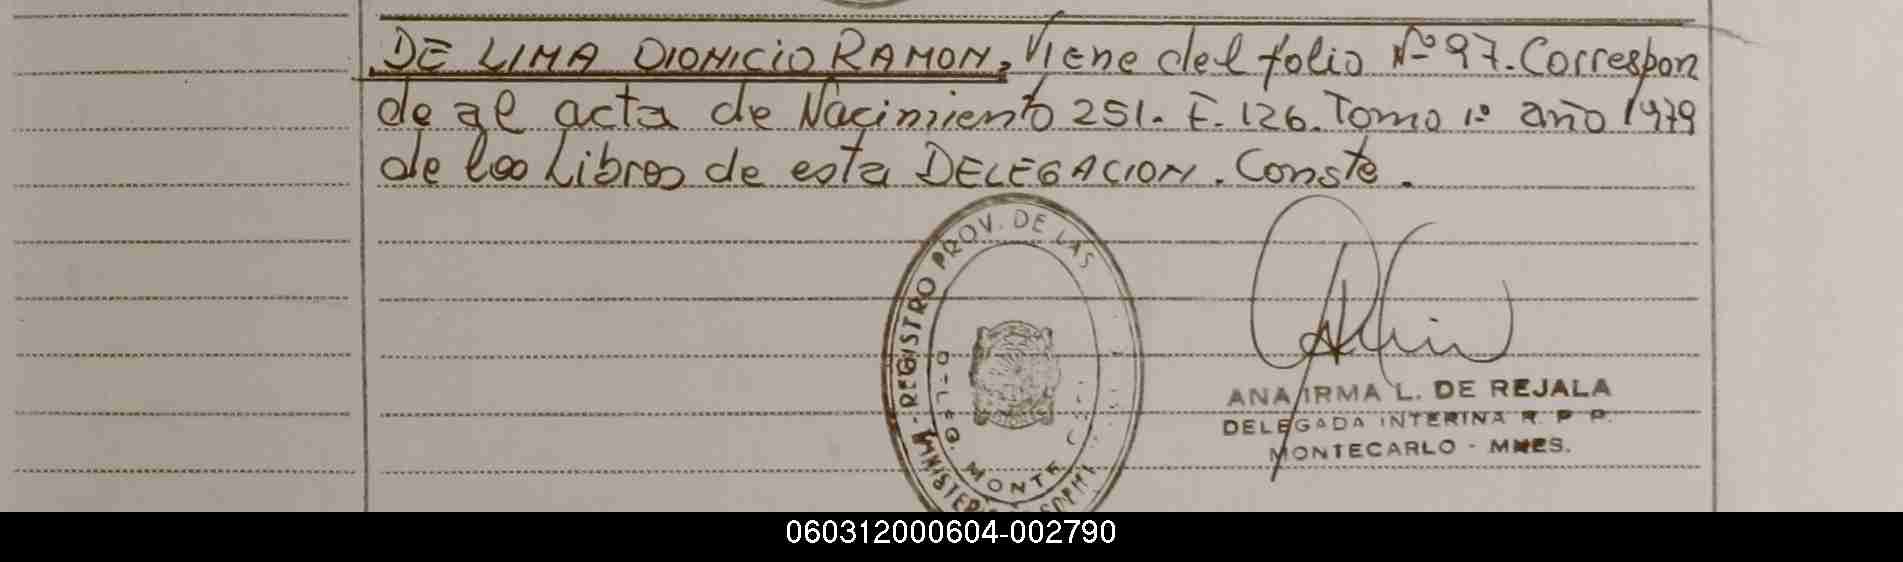 DE LIMA DIONICIO RAMON, Viene del folio Nº 97. Correspon
de al acta de Nacimiento 251. F. 126. Tomo 1º año 1979
de los Libros de esta DELEGACION. Conste.
REGISTRO PROV. DE LAS
DELEG. MONTE
ANA IRMA L. DE REJALA
DELEGADA INTERINA R. P. P.
MONTECARLO - MNES.
060312000604-002790